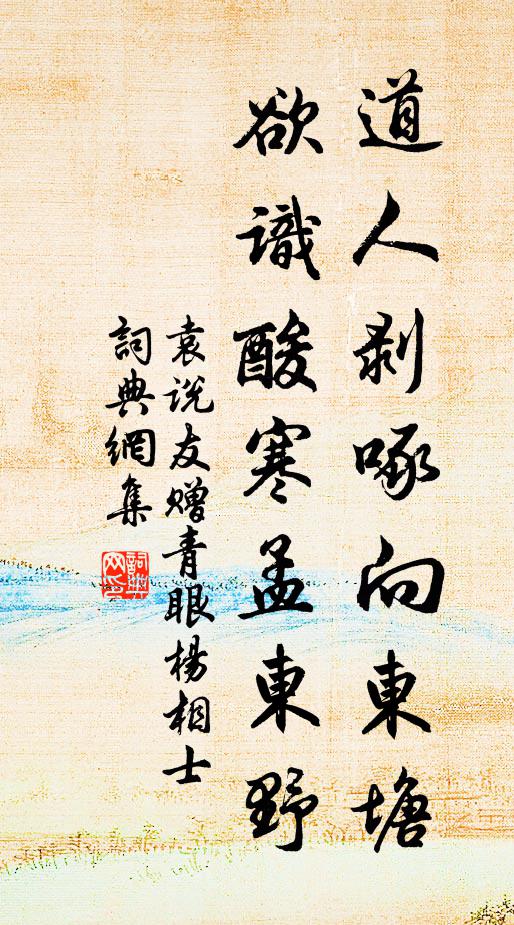 道人剥啄向東塘
欲識酸寒孟東野
袁说友赠青眼楊相士
詞典網集